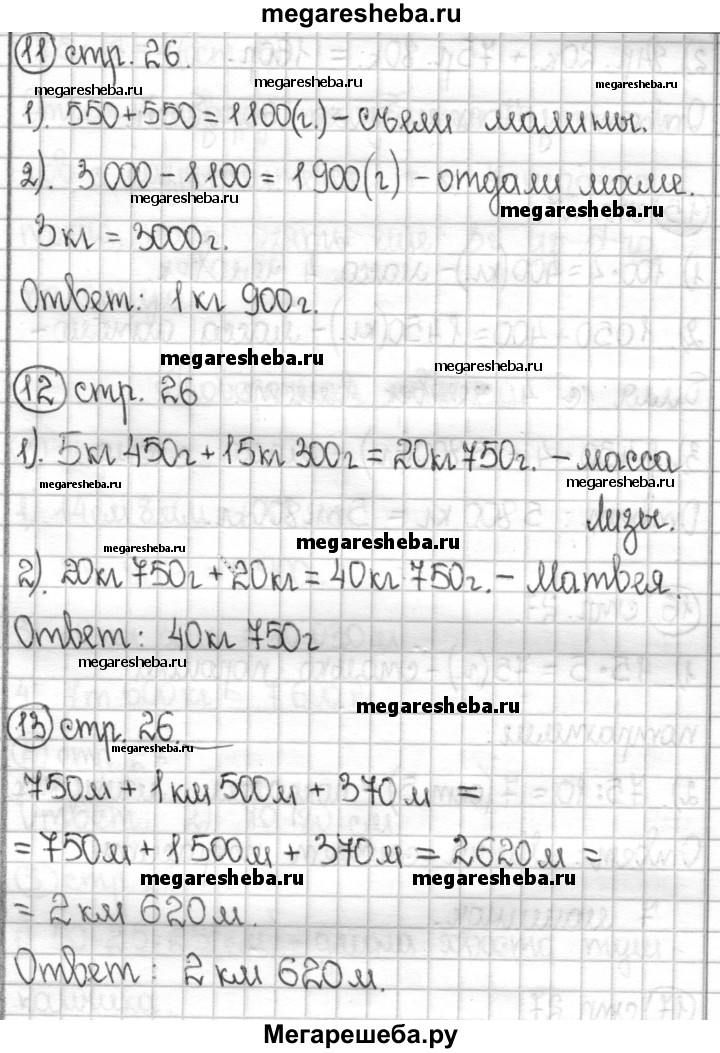 megaresheba.ru
11 стр. 26.
megaresheba.ru megaresheba.ru megaresheba.ru
1). 550+550=1100(г.)-съели малины.
2). 3 000-1100=1900(г) -отдали маме.
megaresheba.ru megaresheba.ru
3кг = 3000г.
Ответ: 1кг 900г.
megaresheba.ru megaresheba.ru
12 стр. 26
1). 5кг 450г+15кг 300г=20кг 750г. -масса
megaresheba.ru megaresheba.ru
Лизы.
megaresheba.ru megaresheba.ru
2). 20кг 750г+20кг=40кг 750г.- Матвея.
Ответ: 40кг 750г
megaresheba.ru
megaresheba.ru
13 стр. 26.
megaresheba.ru
750м+1км 500м + 370м =
=750м+1500м+370м=2620м=
megaresheba.ru megaresheba.ru
= 2км 620м.
Ответ: 2 км 620м.
Мегарешеба.ру